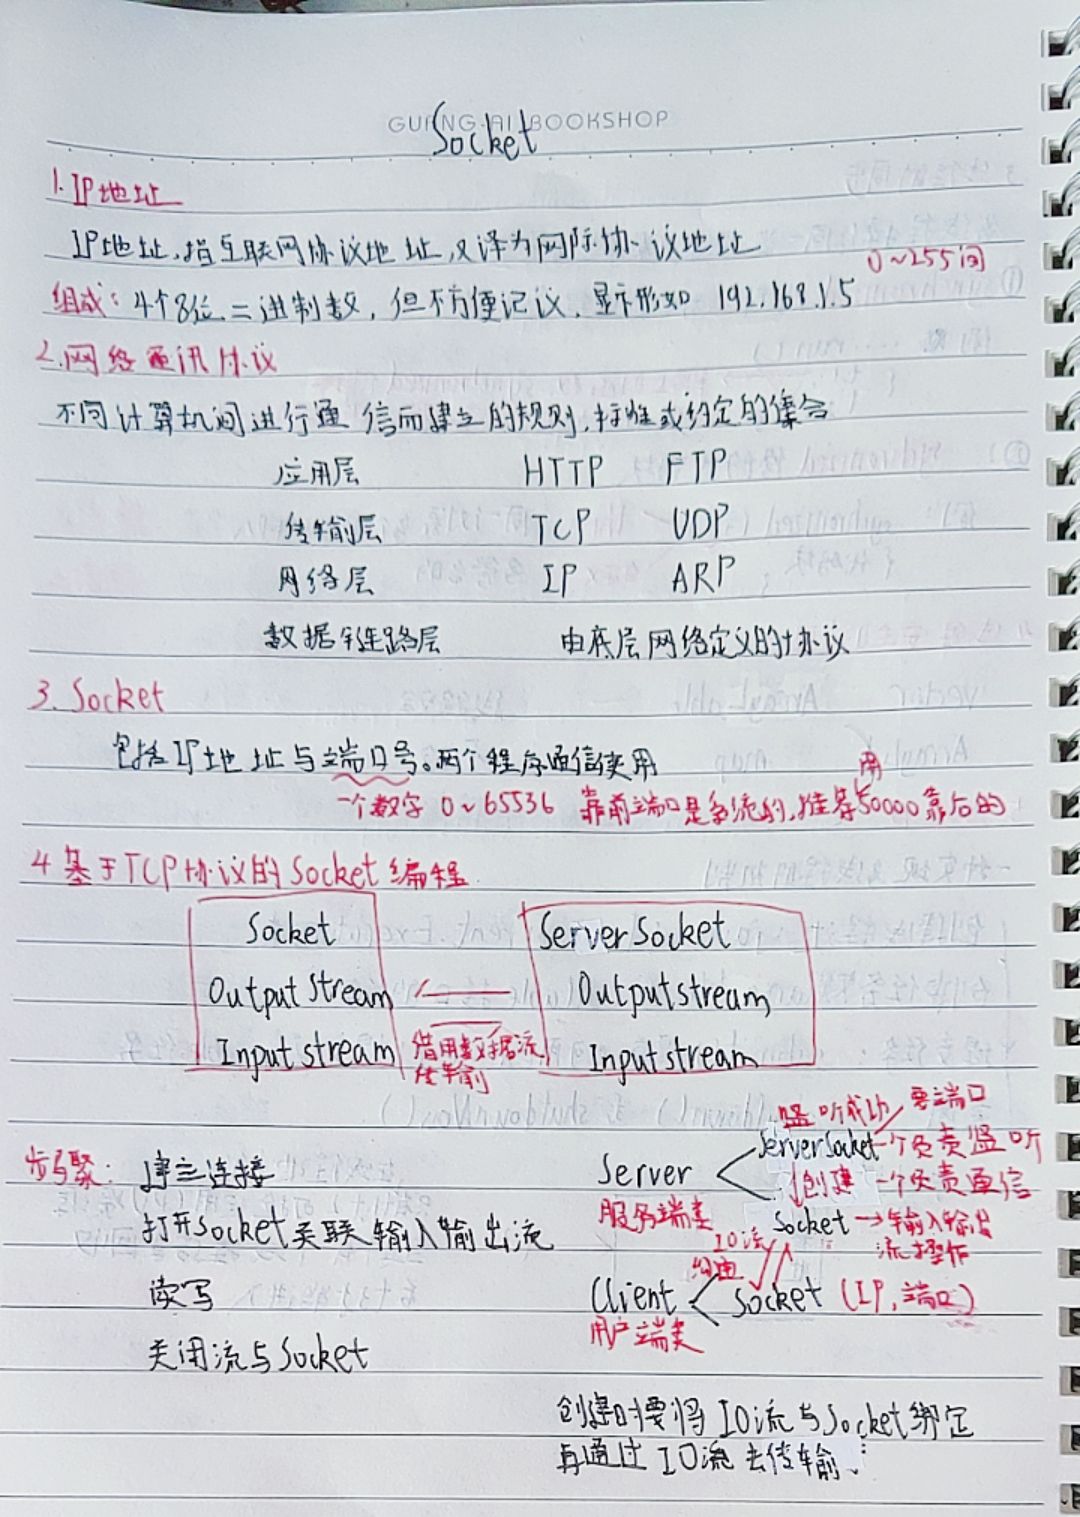 GUANG AI BOOKSHOP
Socket
1. IP地址
IP地址,指互联网协议地址,又译为网际协议地址
0~255间
组成: 4个8位二进制数,但不方便记议,显示形如 192.168.1.5
2.网络通讯协议
不同计算机间进行通信而建立的规则,标准或约定的集合
应用层 HTTP FTP
传输层 TCP UDP
网络层 IP ARP
数据链路层 由底层网络定义的协议
3. Socket
包括IP地址与端口号。两个程序通信使用
用
一个数字 0~65536 靠前端口是系统的,推荐50000靠后的
4 基于TCP协议的Socket编程
Socket ServerSocket
Output stream Outputstream
Input stream Inputstream
借用数据流
传输
监听成功 要端口
步骤: 建立连接 Server ServerSocket 一个负责监听
创建 一个负责通信
服务端类 Socket → 输入输出
打开Socket关联输入输出流 IO流 流操作
沟通
读写 Client Socket (IP,端口)
用户端类
关闭流与Socket
创建时要将IO流与Socket绑定
再通过IO流去传输.